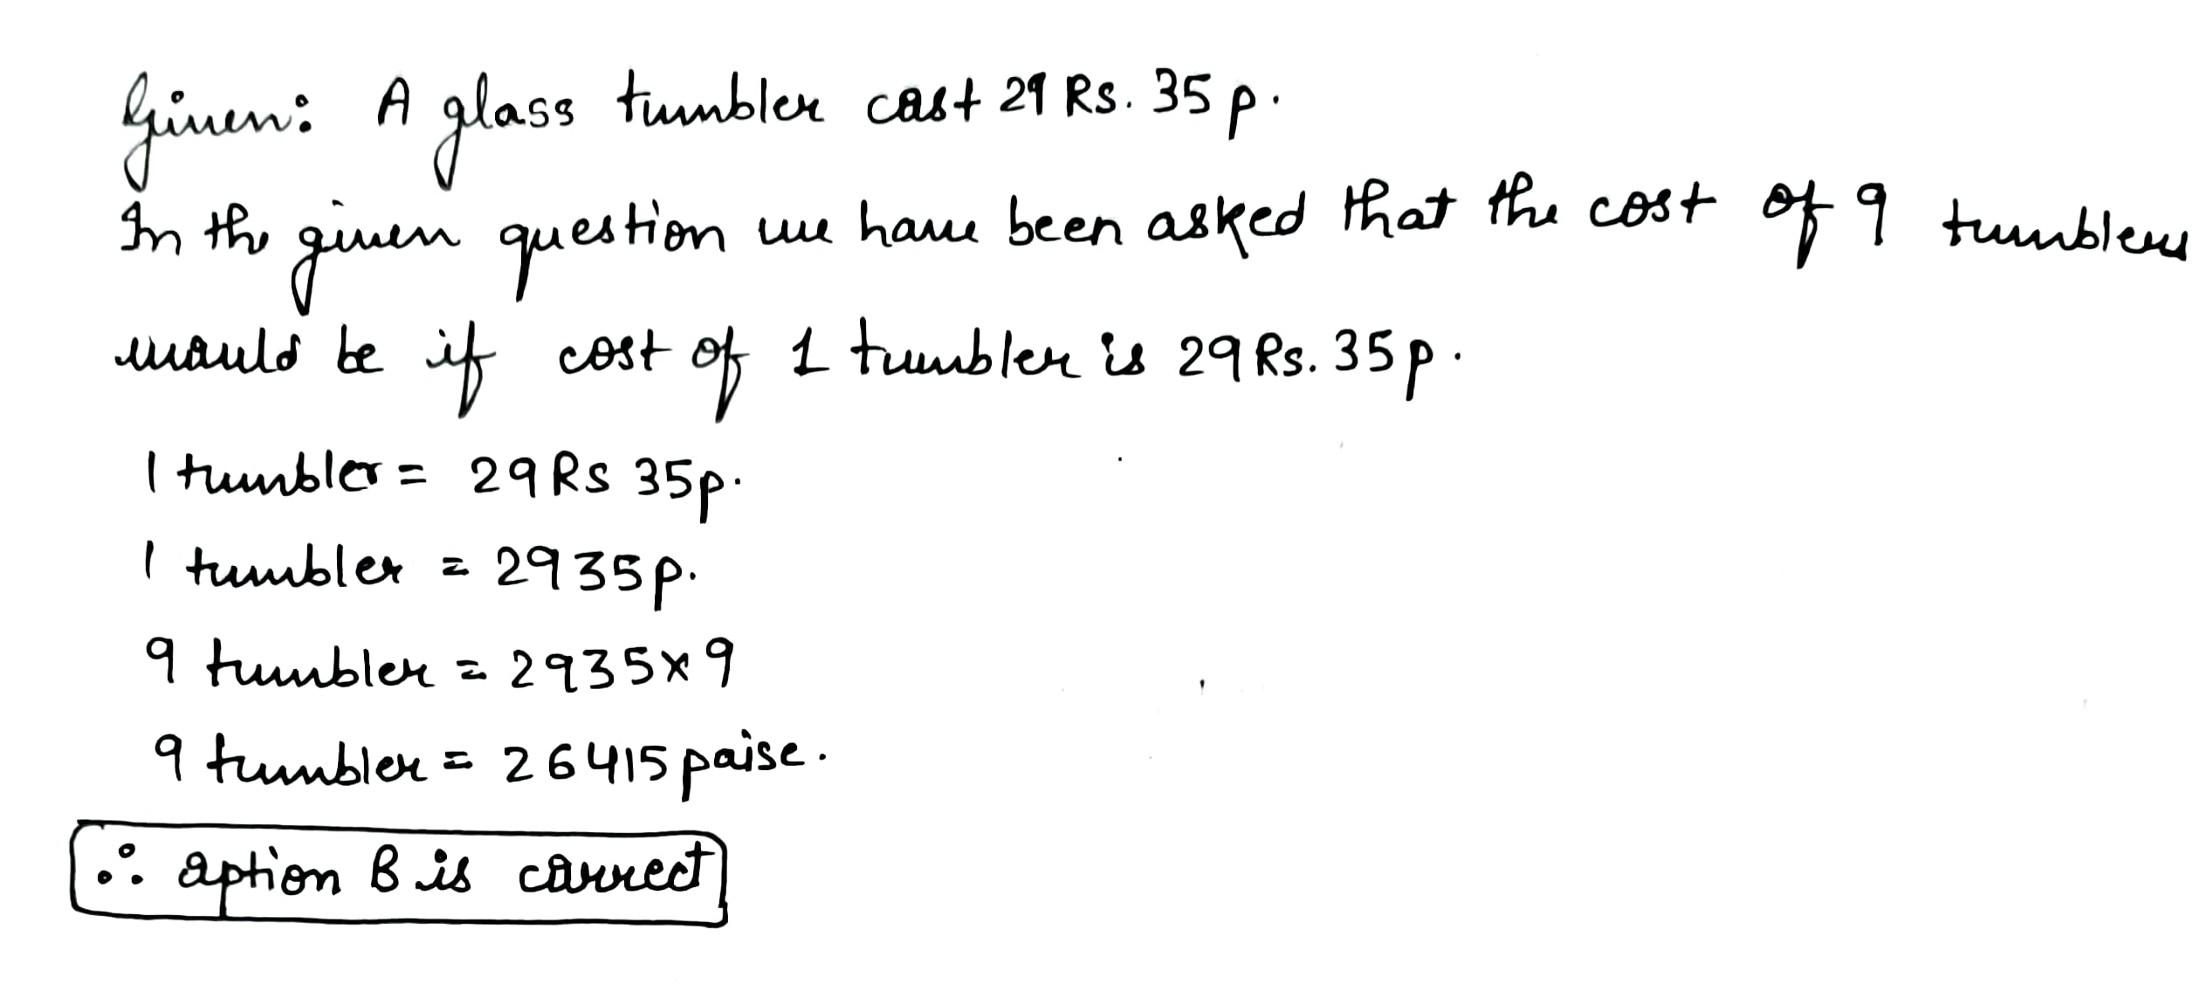 Given: A glass tumbler cost 29 Rs. 35 p.
In the given question we have been asked that the cost of 9 tumblers
would be if cost of 1 tumbler is 29 Rs. 35 p.
1 tumbler = 29 Rs 35p.
1 tumbler = 2935p.
9 tumbler = 2935×9
9 tumbler = 26415 paise.
∴ option B is correct